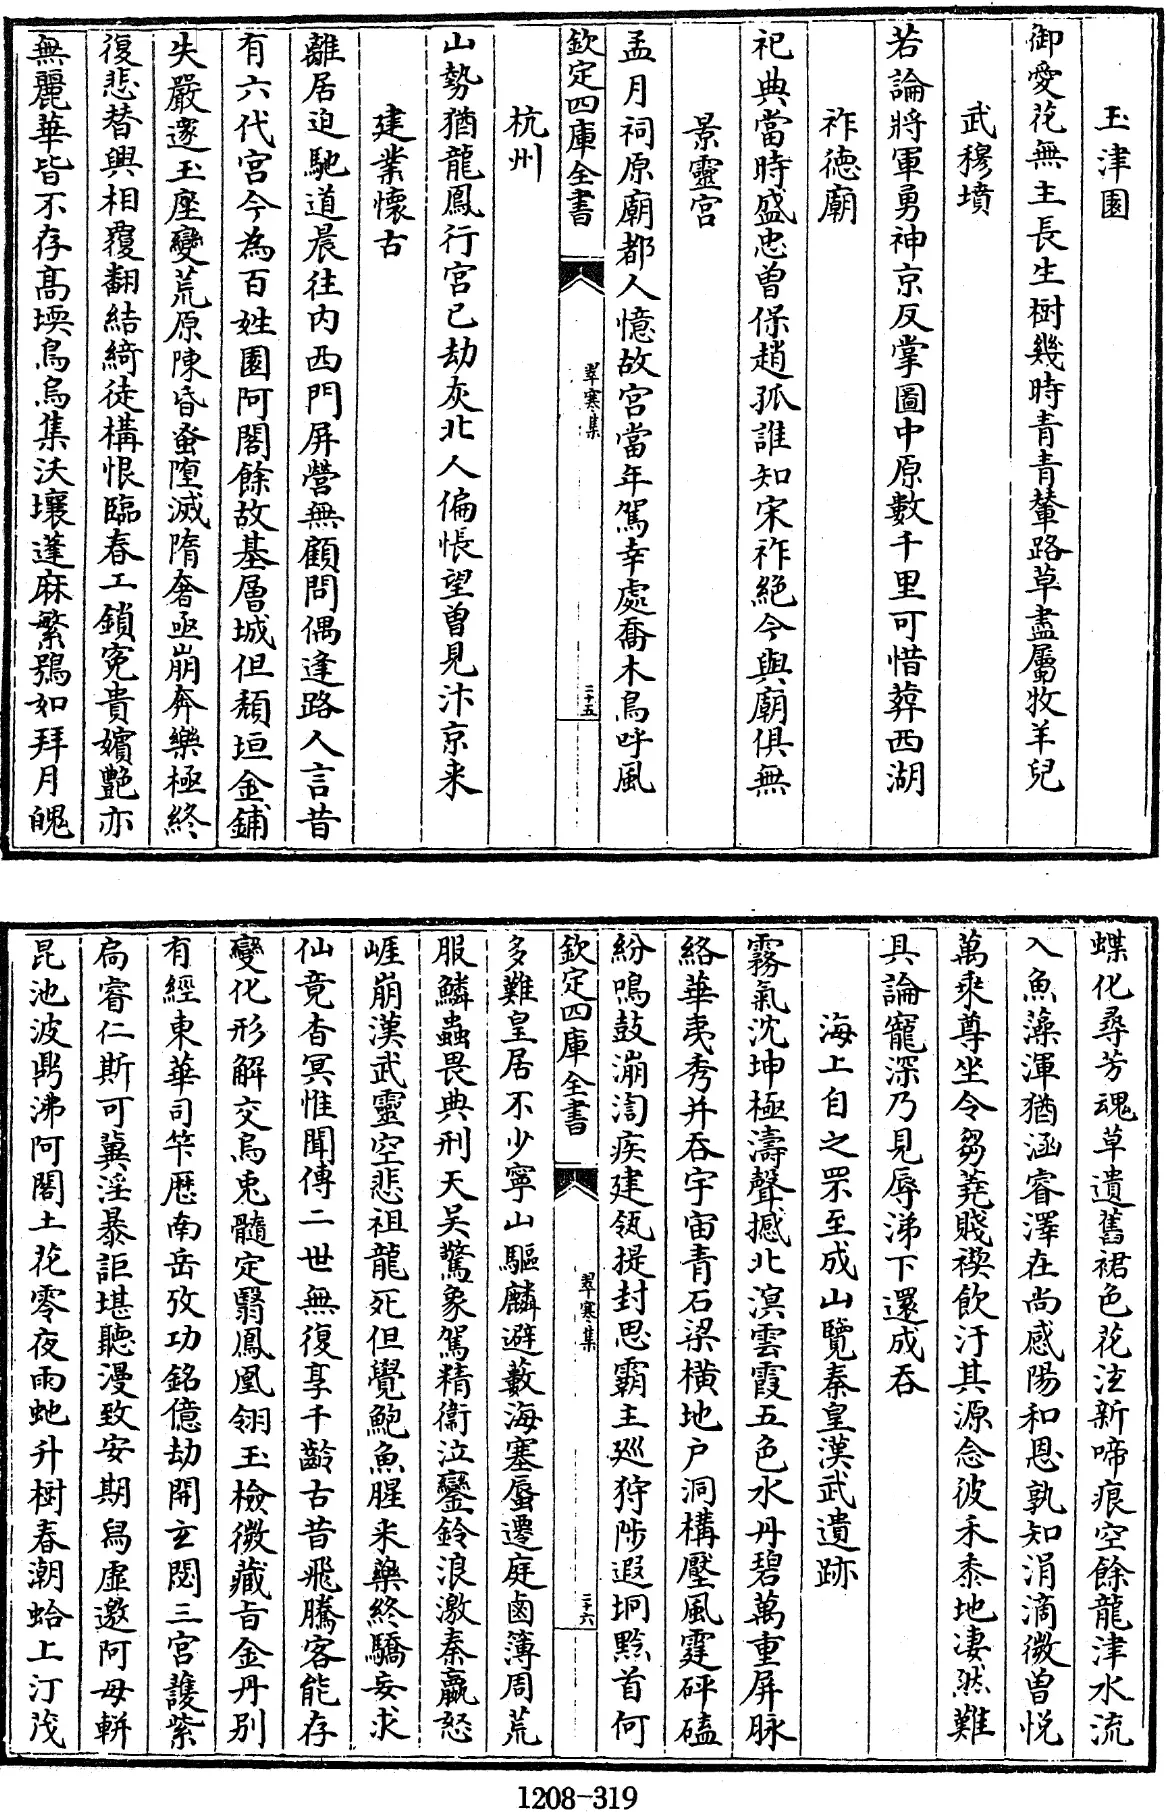 玉津園
御愛花無主長生樹幾時青青輦路草盡屬牧羊兒
武穆墳
若論將軍勇神京反掌圖中原數千里可惜葬西湖
祚德廟
祀典當時盛忠曽保趙孤誰知宋祚絕今與廟俱無
景靈宮
孟月祠原廟都人憶故宮當年駕幸處喬木鳥呼風
欽定四庫全書
翠寒集
二十五
杭州
山勢猶龍鳳行宮已劫灰北人偏悵望曽見汴京来
建業懷古
離居迫馳道晨往内西門屏營無顧問偶逢路人言昔
有六代宮今為百姓園阿閣餘故基層城但頹垣金鋪
失嚴邃玉座變荒原陳昏蚤墮滅隋奢亟崩奔樂極終
復悲替興相覆翻結綺徒構恨臨春工鎖寃貴嬪艷亦
無麗華皆不存髙堧鳥烏集沃壤蓬麻繁鴞如拜月魄
蝶化尋芳魂草遺舊裙色花泫新啼痕空餘龍津水流
入魚藻渾猶涵睿澤在尚感陽和恩孰知涓滴微曽悦
萬乘尊坐令芻蕘賤禊飲汙其源念彼禾黍地凄然難
具論寵深乃見辱涕下還成吞
海上自之罘至成山覽秦皇漢武遺跡
霧氣沈坤極濤聲撼北溟雲霞五色水丹碧萬重屏脉
絡華夷秀并吞宇宙青石梁横地户洞構壓風霆砰磕
紛鳴鼓漰渹疾建瓴提封思霸主廵狩陟遐坰黔首何
欽定四庫全書
翠寒集
二十六
多難皇居不少寧山驅麟避藪海塞蜃遷庭鹵簿周荒
服鱗蟲畏典刑天吴驚象駕精衞泣鑾鈴浪激秦嬴怒
崕崩漢武靈空悲祖龍死但覺鮑魚腥采藥終驕妄求
仙竟杳冥惟聞傳二世無復享千齡古昔飛騰客能存
變化形解交烏兎髓定翳鳳凰翎玉檢微藏旨金丹别
有經東華司竿歴南岳攷功銘億劫開玄閟三宮護紫
扃睿仁斯可冀淫暴詎堪聽漫致安期舄虚邀阿母軿
昆池波鼎沸阿閣土花零夜雨虵升樹春潮蛤上汀茂
1208-319